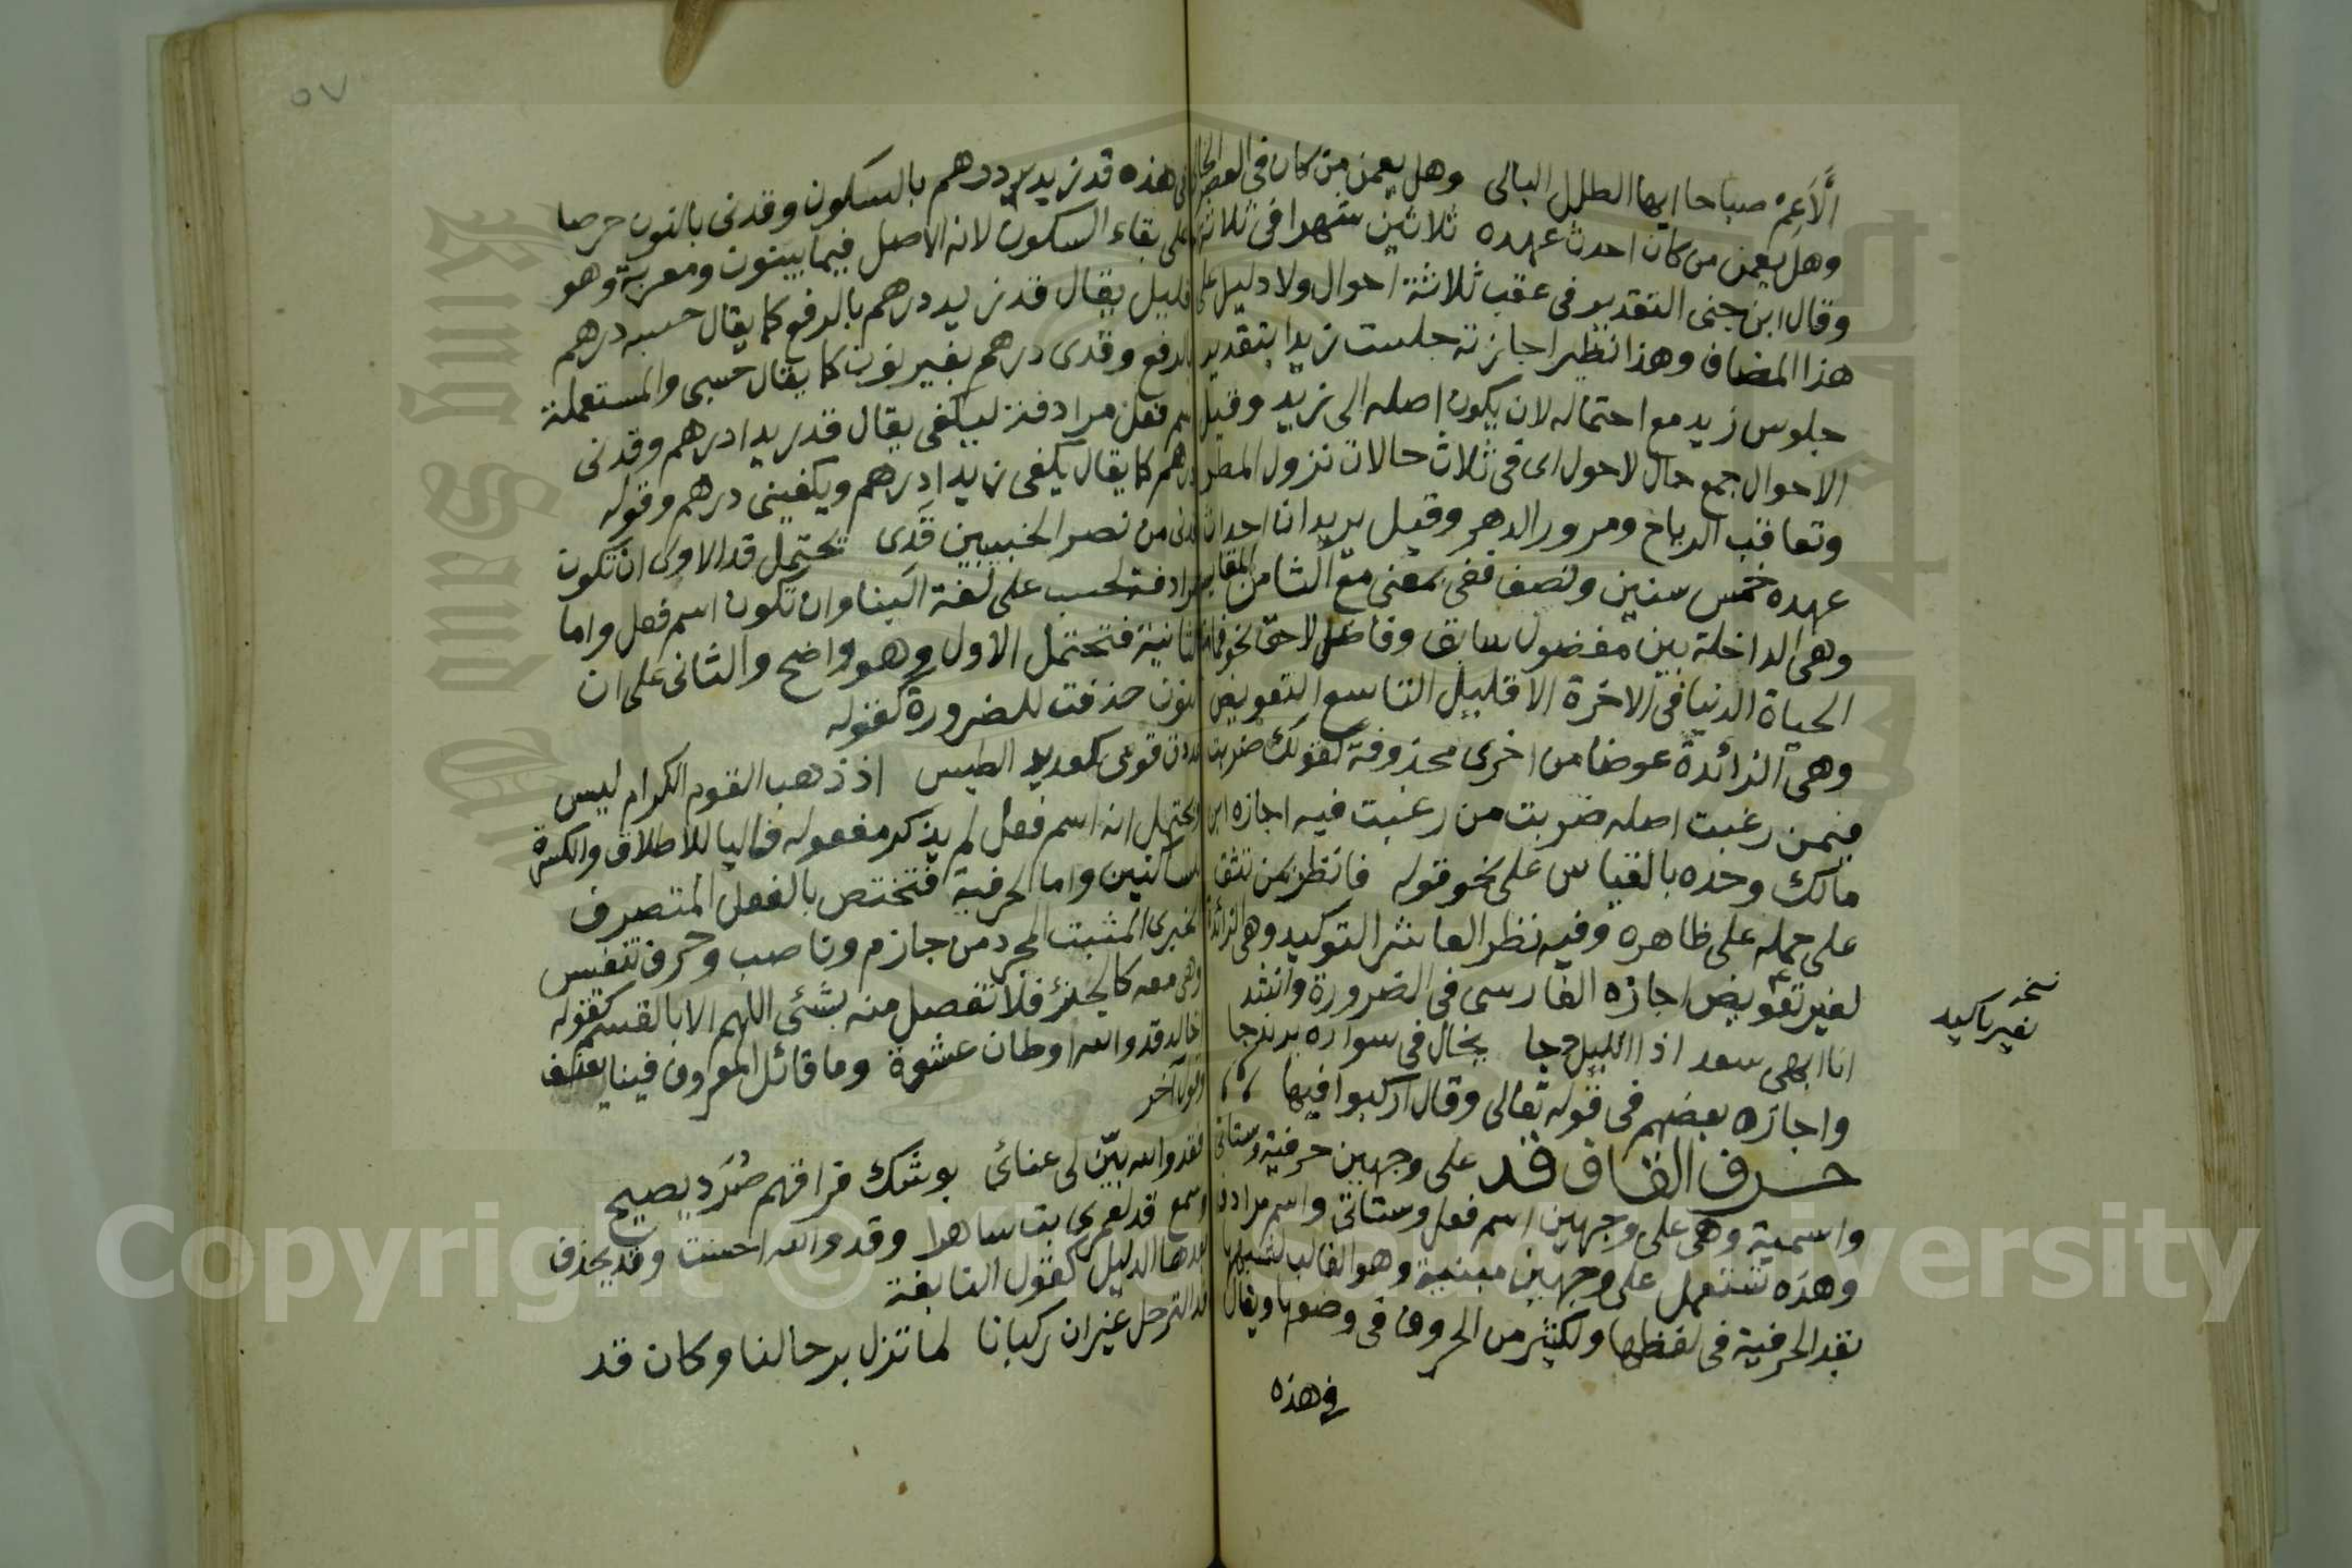 الَّاعِمْ صباحا ايها الطلل البالى وهل يعمن من كان فى العصر الخالى
وهل يعمن من كان احدث عهده ثلاثين شهرا فى ثلاثة
وقال ابن جنى التقدير فى عقب ثلاثة احوال ولا دليل على
هذا المضاف وهذا نظير اجازته جلست زيدا بتقدير
جلوس زيد مع احتماله لان يكون اصله الى زيد وقيل
الاحوال جمع حال لا حول اى فى ثلاث حالات نزول المطر
وتعاقب الرياح ومرور الدهر وقيل يريد ان احداث
عهده خمس سنين ونصف ففى بمعنى مع الثامن المقايسة
وهى الداخلة بين مفضول سابق وفاضل لاحق نحو فما متاع
الحياة الدنيا فى الاخرة الا قليل التاسع التعويض
وهى الزائدة عوضا من اخرى محذوفة كقولك ضربت
فيمن رغبت اصله ضربت من رغبت فيه اجازه ابن
مالك وحده بالقياس على نحو قوله فانظر بمن تثق
على حمله على ظاهره وفيه نظر العاشر التوكيد وهى الزائدة
لغير تعويض اجازه الفارسى فى الضرورة وانشد
انا ابهى سعد اذا الليل دجا يخال فى سواده يرندجا
واجازه بعضهم فى قوله تعالى وقال اركبوا فيها
حرف القاف قد على وجهين حرفية وستاتى
واسمية وهى على وجهين اسم فعل وستاتى واسم مرادف
وهذه تستعمل على وجهين مبنية وهو الغالب لشبهها
بقد الحرفية فى لفظها ولكثير من الحروف فى وضعها ويقال
فى هذه
نسخه
لغير تاكيد
٥٧
فى هذه قد زيد درهم بالسكون وقدنى بالنون حرصا
على بقاء السكون لانه الاصل فيما يبنون ومعربة وهو
قليل يقال قد زيد درهم بالرفع كما يقال حسبه درهم
بالرفع وقدى درهم بغير نون كما يقال حسبى والمستعملة
اسم فعل مرادفة ليكفى يقال قد زيدا درهم وقدنى
درهم كما يقال يكفى زيدا درهم ويكفينى درهم وقوله
قدنى من نصر الخبيبين قَدَى تحتمل قد الاولى ان تكون
مرادفة لحسب على لغة البنا وان تكون اسم فعل واما
الثانية فتحتمل الاول وهو واضح والثانى على ان
النون حذفت للضرورة كقوله
عددت قومى كعديد الطيس اذ ذهب القوم الكرام ليس
ويحتمل انه اسم فعل لم يذكر مفعوله فاليا للاطلاق والكسرة
للساكنين واما الحرفية فتختص بالفعل المتصرف
الخبرى المثبت المجرد من جازم وناصب وحرف تنفيس
وهى معه كالجزء فلا تفصل منه بشئى اللهم الا بالقسم كقوله
اخالد قد والله اوطان عشوة وما قائل المعروف فينا يعنف
وقول آخر
فقد والله بيّن لى عنائى بوشك فراقهم صُرَد يصيح
وسمع قد لعمرى بت ساهرا وقد والله احسنت وقد يحذف
بعدها الدليل كقول النابغة
افد الترحل غير ان ركبانا لما تزل برحالنا وكان قد